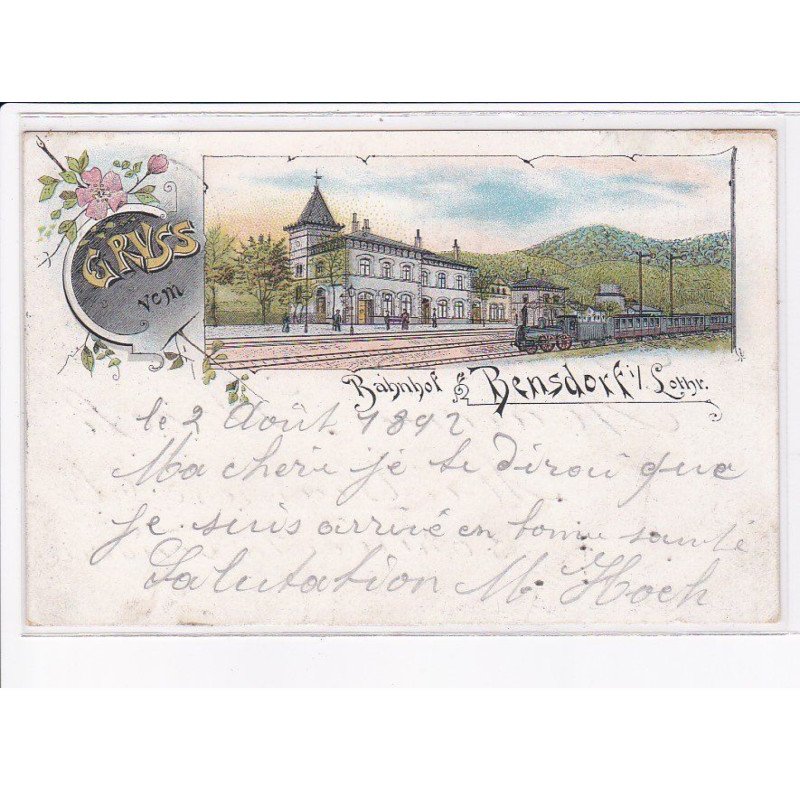 GRUSS
vom
Bahnhof Bensdorf i/ Lothr.
le 2 Août 1892
Ma cheri je te dirou que
je suis arrivé en bonne santé
Salutation M. Hoch